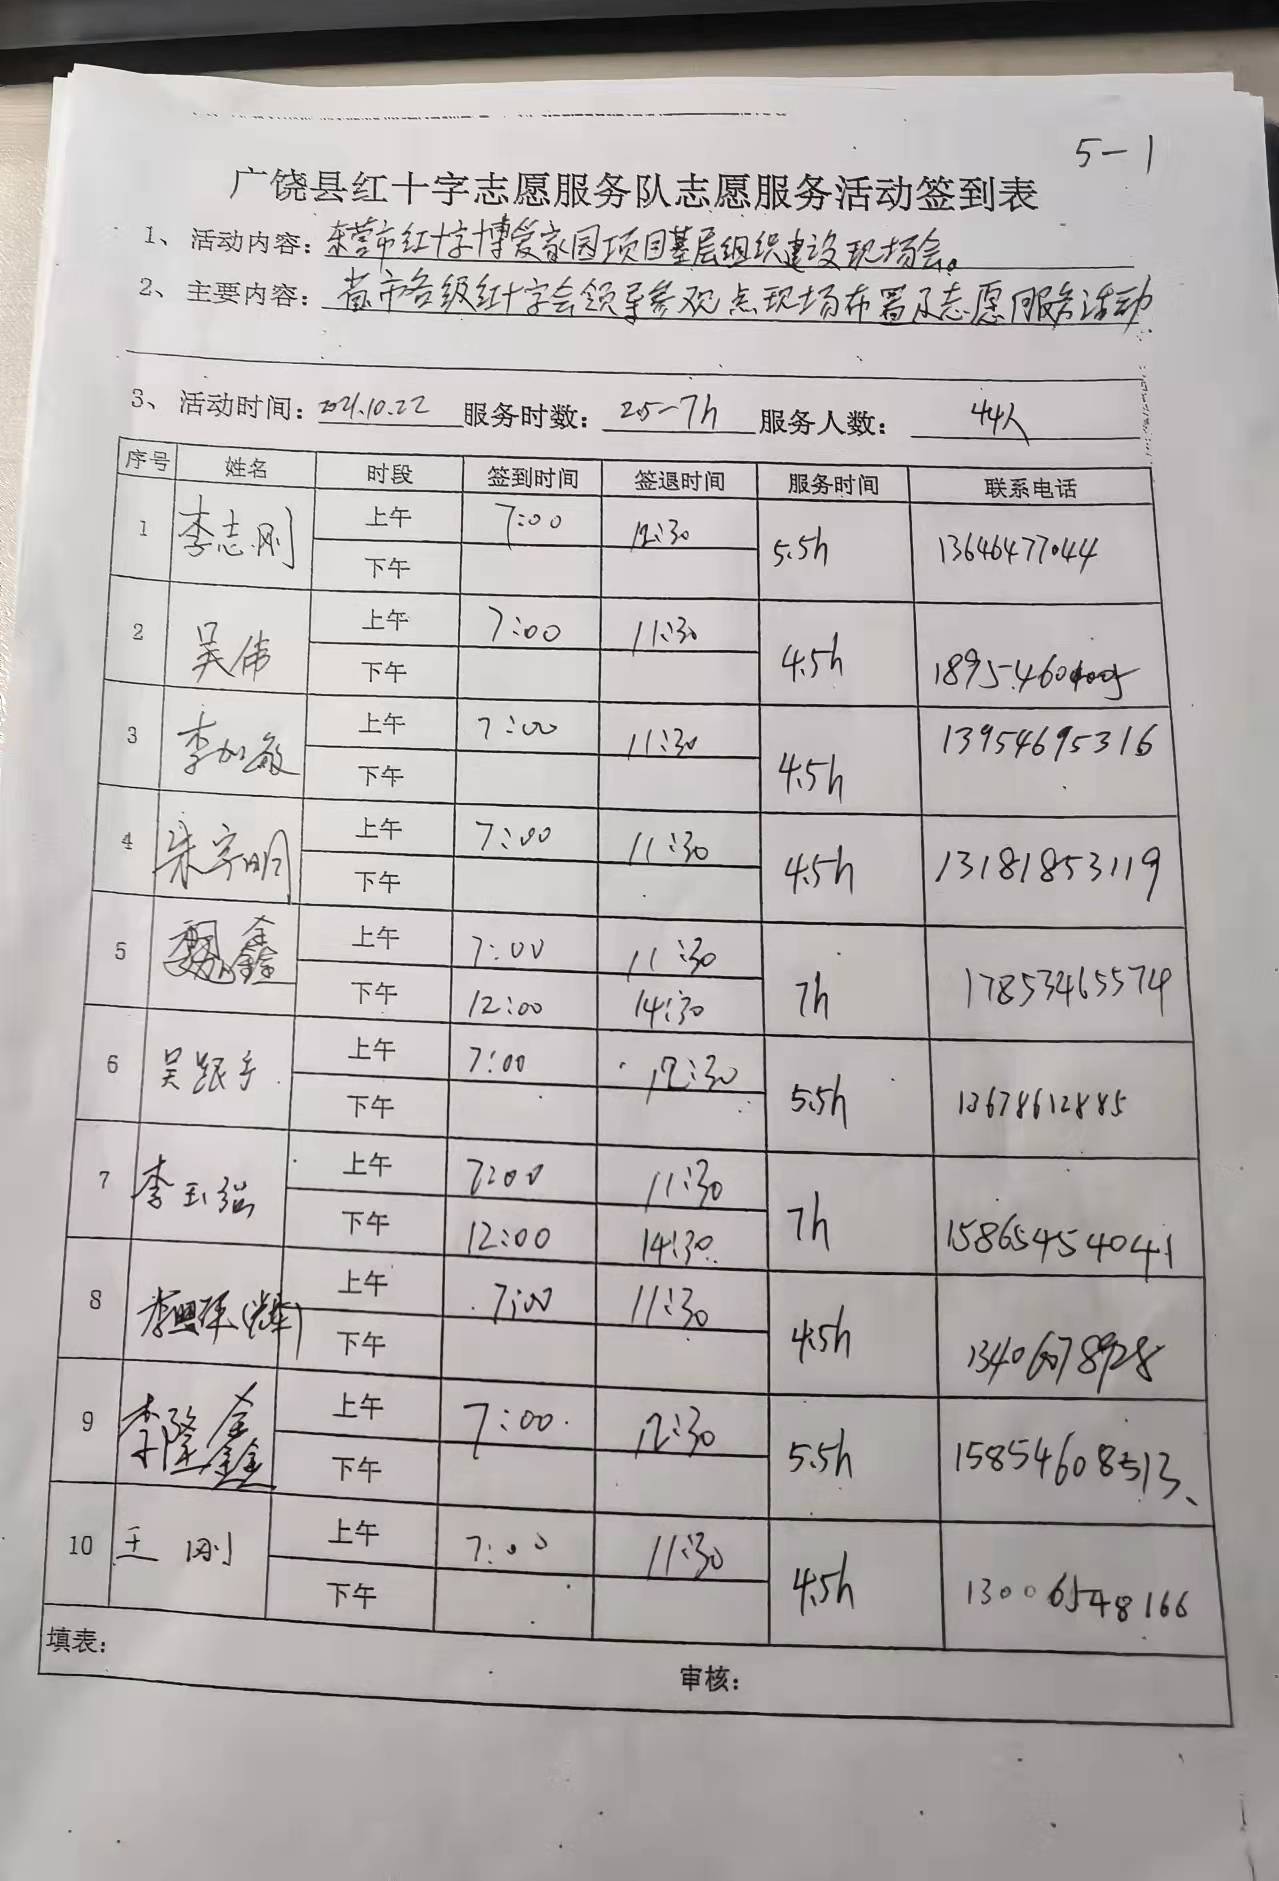 5-1
广饶县红十字志愿服务队志愿服务活动签到表
1、活动内容：东营市红十字博爱家园项目基层组织建设现场会。
2、主要内容：省市各级红十字会领导参观点现场布置及志愿服务活动
3、活动时间：2021.10.22 服务时数：2.5-7h 服务人数：44人
序号 姓名 时段 签到时间 签退时间 服务时间 联系电话
1 李志刚 上午 7:00 12:30 5.5h 13646477044
下午
2 吴伟 上午 7:00 11:30 4.5h
下午
3 李加敏 上午 7:00 11:30 4.5h 13954695316
下午
4 上午 7:00 11:30 4.5h 13181853119
下午
5 魏鑫 上午 7:00 11:30 7h 17853465574
下午 12:00 14:30
6 上午 7:00 12:30 5.5h 13678612885
下午
7 李玉强 上午 7:00 11:30 7h 15865454041
下午 12:00 14:30
8 上午 7:00 11:30 4.5h
下午
9 李隆鑫 上午 7:00 12:30 5.5h 15854608513、
下午
10 王刚 上午 7:00 11:30 4.5h 13006548166
下午
填表：
审核：